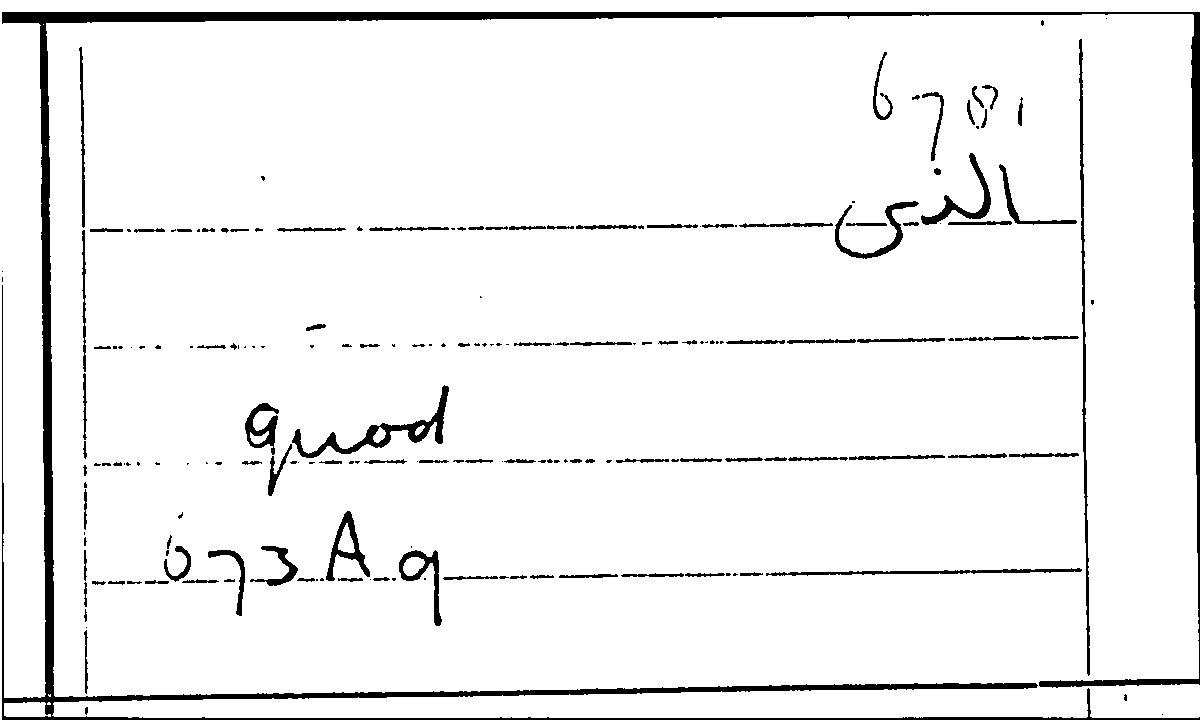 678,
الذى
quod
673 A 9